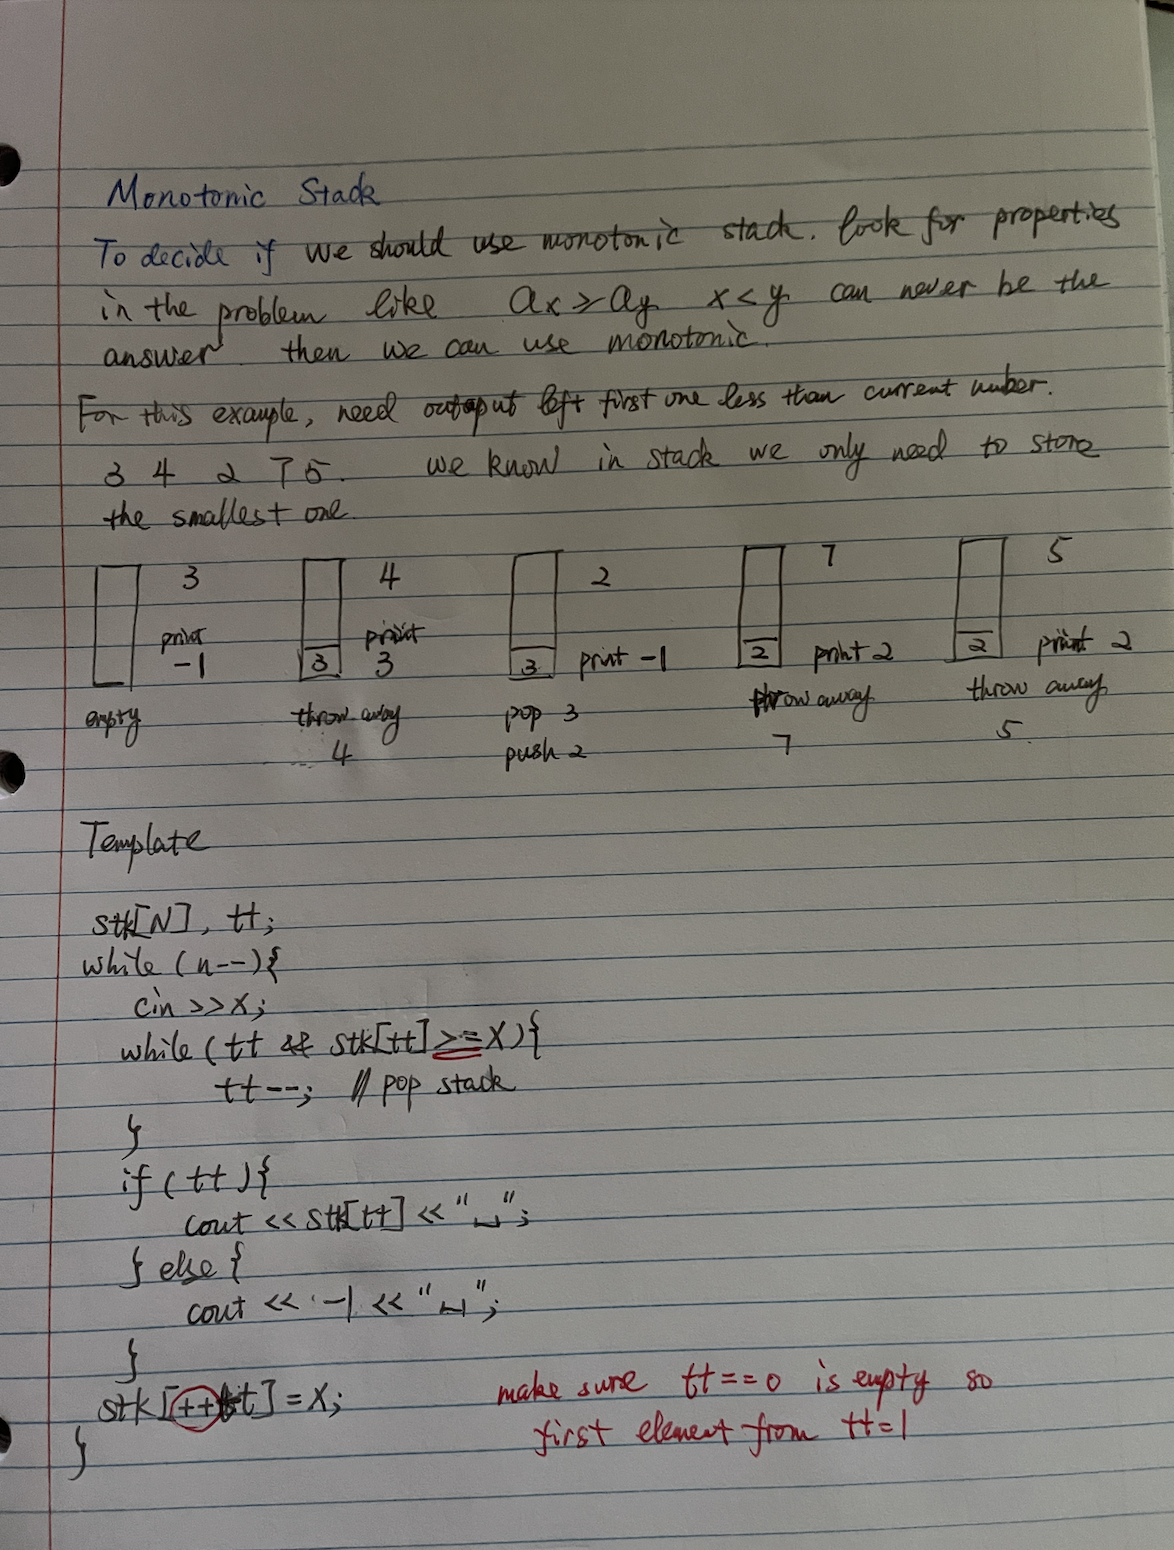 Monotonic Stack
To decide if we should use monotonic stack. look for properties
in the problem like ax ≥ ay x < y can never be the
answer then we can use monotonic.
For this example, need output left first one less than current number.
3 4 2 7 5. we know in stack we only need to store
the smallest one
3 4 2 7 5
print print
-1 3 3 3 print -1 2 print 2 2 print 2
empty throw away pop 3 throw away throw away
4 push 2 7 5.
Template
stk[N], tt;
while (n--){
cin >> x;
while (tt && stk[tt] >= x){
tt--; // pop stack
}
if (tt){
cout << stk[tt] << "␣";
} else {
cout << -1 << "␣";
}
stk[++tt] = x; make sure tt==0 is empty so
first element from tt=1
}